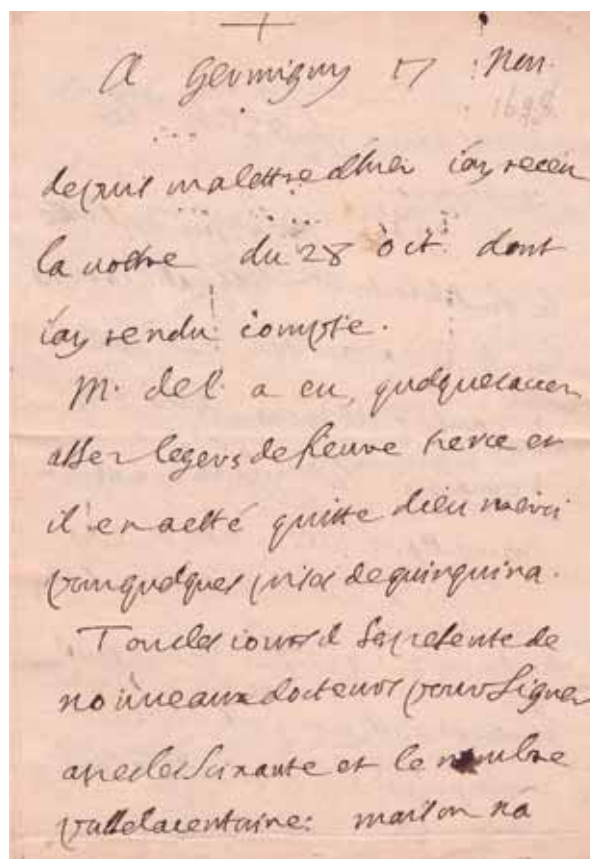 A Germigny 17 : Nov.
1698.
depuis ma lettre d'hier iay receu
la vostre du 28 oct. dont
iay rendu compte.
M. de P. a eu quelques acces
asses legers de fieuvre tierce et
il en a esté quitte dieu merci
pour quelques prises de quinquina.
Tous les iours il se presente de
nouueaux docteurs pour signer
apres les soixante et le nombre
passe la centaine: mais on na